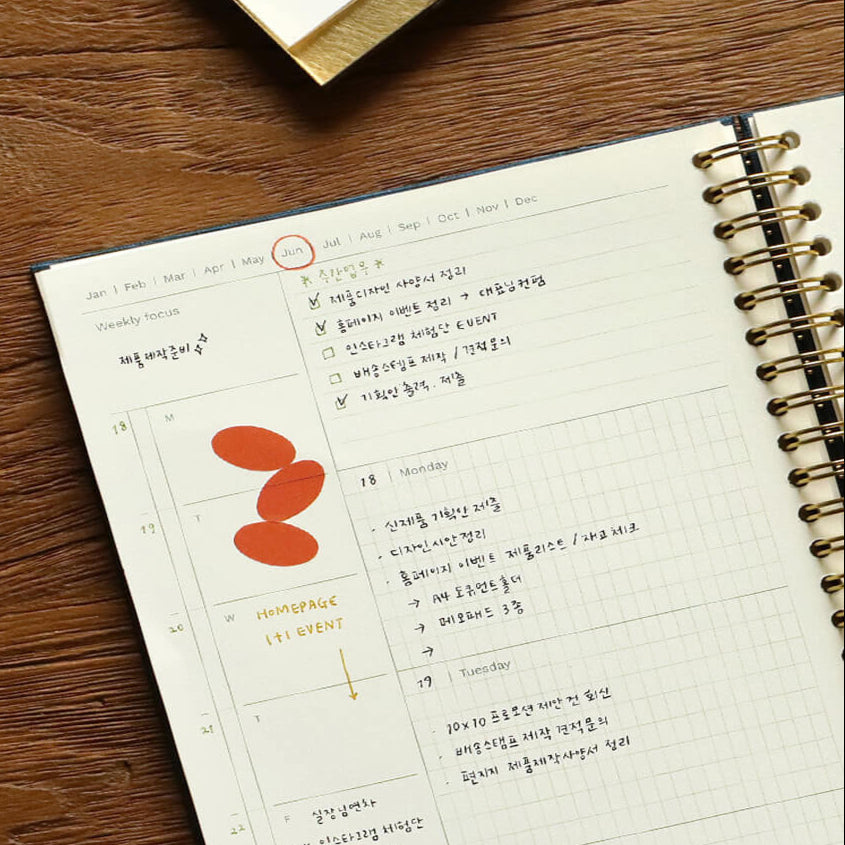 Jan | Feb | Mar | Apr | May | Jun | Jul | Aug | Sep | Oct | Nov | Dec
Weekly focus
제품제작준비
* 주간업무 *
제품디자인 사양서 정리
홈페이지 이벤트 정리 → 대표님컨펌
인스타그램 체험단 EVENT
배송스템프 제작 / 견적문의
기획안 출력. 제출
18
M
19
T
20
W
HOMEPAGE
1+1 EVENT
21
T
22
F
실장님연차
인스타그램 체험단
18 | Monday
· 신제품 기획안 제출
· 디자인시안정리
· 홈페이지 이벤트 제품리스트 / 재고체크
→ A4 도큐먼트홀더
→ 메모패드 3종
→
19 | Tuesday
· 10x10 프로모션 제안 건 회신
· 배송스탬프 제작 견적문의
· 편지지 제품제작사양서 정리